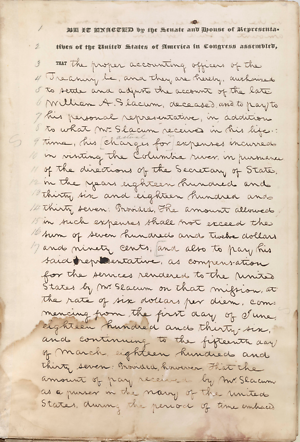 BE IT ENACTED by the Senate and House of Representa-
tives of the United States of America in Congress assembled,
THAT the proper accounting officers of the
Treasury be, and they are hereby, authorized
to settle and adjust the account of the late
William A. Slacum, deceased, and to pay to
his personal representative, in addition
to what Mr Slacum received in his life-
time, his charges for expenses incurred
in visiting the Columbia river in pursuance
of the directions of the Secretary of State,
in the years eighteen hundred and
thirty six and eighteen hundred and
thirty seven. Provided, The amount allowed
in such expenses shall not exceed the
sum of seven hundred and twelve dollars
and ninety cents, and also to pay his
said representative, as compensation
for the services rendered to the United
States by Mr Slacum on that mission, at
the rate of six dollars per diem, com-
mencing from the first day of June,
eighteen hundred and thirty-six,
and continuing to the fifteenth day
of March, eighteen hundred and
thirty seven: Provided, however, That the
amount of pay received by Mr Slacum
as a purser in the navy of the United
States, during the period of time embraced